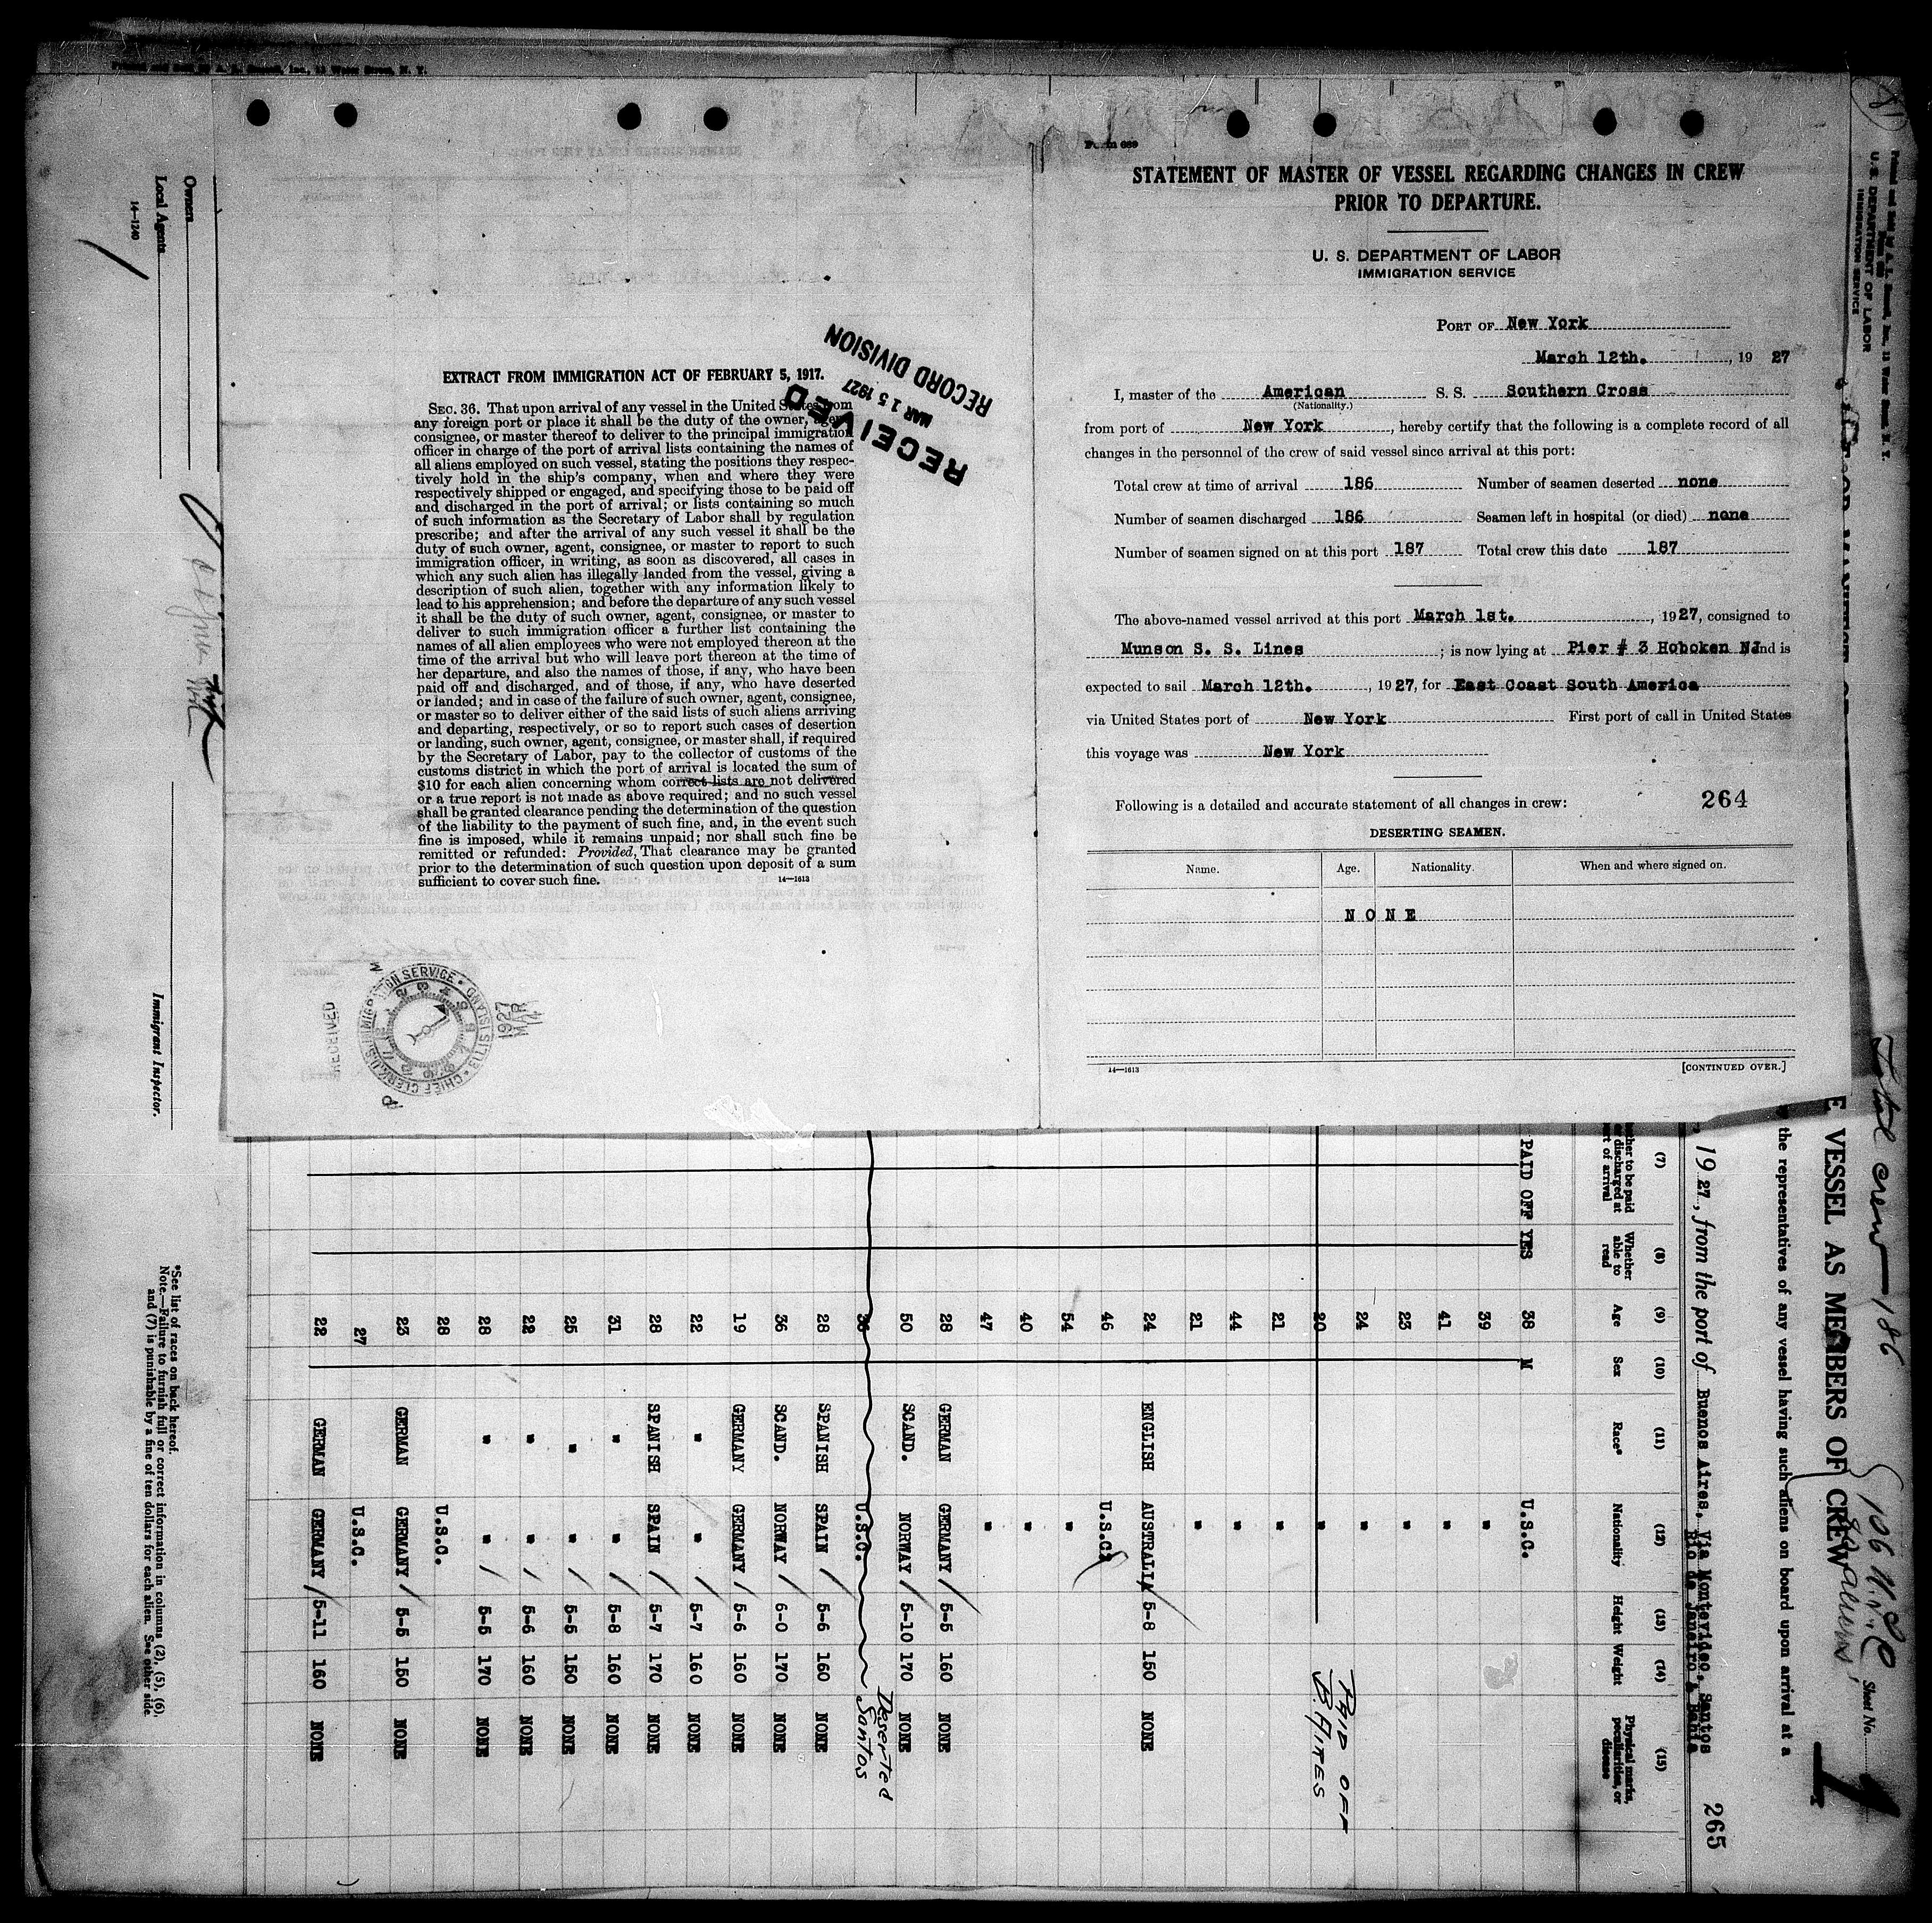 Form 689
STATEMENT OF MASTER OF VESSEL REGARDING CHANGES IN CREW
PRIOR TO DEPARTURE.
U. S. DEPARTMENT OF LABOR
IMMIGRATION SERVICE
PORT OF New York
March 12th. , 19 27
I, master of the American S. S. Southern Cross
(Nationality.)
from port of New York , hereby certify that the following is a complete record of all
changes in the personnel of the crew of said vessel since arrival at this port:
Total crew at time of arrival 186 Number of seamen deserted none
Number of seamen discharged 186 Seamen left in hospital (or died) none
Number of seamen signed on at this port 187 Total crew this date 187
The above-named vessel arrived at this port March 1st. , 1927, consigned to
Munson S. S. Lines ; is now lying at Pier # 3 Hoboken NJ and is
expected to sail March 12th. , 1927, for East Coast South America
via United States port of New York First port of call in United States
this voyage was New York
Following is a detailed and accurate statement of all changes in crew: 264
DESERTING SEAMEN.
Name. Age. Nationality. When and where signed on.
N O N E
14—1613 [CONTINUED OVER.]
EXTRACT FROM IMMIGRATION ACT OF FEBRUARY 5, 1917.
SEC. 36. That upon arrival of any vessel in the United States from
any foreign port or place it shall be the duty of the owner, agent,
consignee, or master thereof to deliver to the principal immigration
officer in charge of the port of arrival lists containing the names of
all aliens employed on such vessel, stating the positions they respec-
tively hold in the ship's company, when and where they were
respectively shipped or engaged, and specifying those to be paid off
and discharged in the port of arrival; or lists containing so much
of such information as the Secretary of Labor shall by regulation
prescribe; and after the arrival of any such vessel it shall be the
duty of such owner, agent, consignee, or master to report to such
immigration officer, in writing, as soon as discovered, all cases in
which any such alien has illegally landed from the vessel, giving a
description of such alien, together with any information likely to
lead to his apprehension; and before the departure of any such vessel
it shall be the duty of such owner, agent, consignee, or master to
deliver to such immigration officer a further list containing the
names of all alien employees who were not employed thereon at the
time of the arrival but who will leave port thereon at the time of
her departure, and also the names of those, if any, who have been
paid off and discharged, and of those, if any, who have deserted
or landed; and in case of the failure of such owner, agent, consignee,
or master so to deliver either of the said lists of such aliens arriving
and departing, respectively, or so to report such cases of desertion
or landing, such owner, agent, consignee, or master shall, if required
by the Secretary of Labor, pay to the collector of customs of the
customs district in which the port of arrival is located the sum of
$10 for each alien concerning whom correct lists are not delivered
or a true report is not made as above required; and no such vessel
shall be granted clearance pending the determination of the question
of the liability to the payment of such fine, and, in the event such
fine is imposed, while it remains unpaid; nor shall such fine be
remitted or refunded: Provided, That clearance may be granted
prior to the determination of such question upon deposit of a sum
sufficient to cover such fine.
14—1613
RECEIVED
MAR 15 1927
RECORD DIVISION
RECEIVED
CHIEF CLERK U.S. IMMIGRATION SERVICE • ELLIS ISLAND
1927
MAR
14
U. S. DEPARTMENT OF LABOR
IMMIGRATION SERVICE
Total crew 186
Sheet No. 1
E VESSEL AS MEMBERS OF CREW
the representatives of any vessel having such aliens on board upon arrival at a
, 19 27, from the port of Buenos Aires. Via Montevideo. Santos
Rio de Janeiro. & Bahia
265
(7) (8) (9) (10) (11) (12) (13) (14) (15)
Whether able to read
Age
Sex
Race*
Nationality
Height
Weight
Physical marks, peculiarities, or disease
PAID OFF YES 38 M U.S.C.
39 "
41 "
23 "
24 "
20 " PAID OFF B. AIRES
21 "
44 "
21 "
24 ENGLISH AUSTRALIA 5-8 150 NONE
46 U.S.C.
54 "
40 "
47 "
28 GERMAN GERMANY 5-5 160 NONE
50 SCAND. NORWAY 5-10 170 NONE
U.S.C. Deserted Santos
28 SPANISH SPAIN 5-6 160 NONE
36 SCAND. NORWAY 6-0 170 NONE
19 GERMANY GERMANY 5-6 160 NONE
22 " " 5-7 160 NONE
28 SPANISH SPAIN 5-7 170 NONE
31 " " 5-8 160 NONE
25 " " 5-5 150 NONE
22 " " 5-6 160 NONE
28 " " 5-5 170 NONE
28 U.S.C.
23 GERMAN GERMANY 5-5 150 NONE
27 U.S.C.
22 GERMAN GERMANY 5-11 160 NONE
*See list of races on back hereof.
Note.—Failure to furnish full or correct information in columns (2), (5), (6),
and (7) is punishable by a fine of ten dollars for each alien. See other side
Owners
Local Agents
14—1240
Immigrant Inspector.